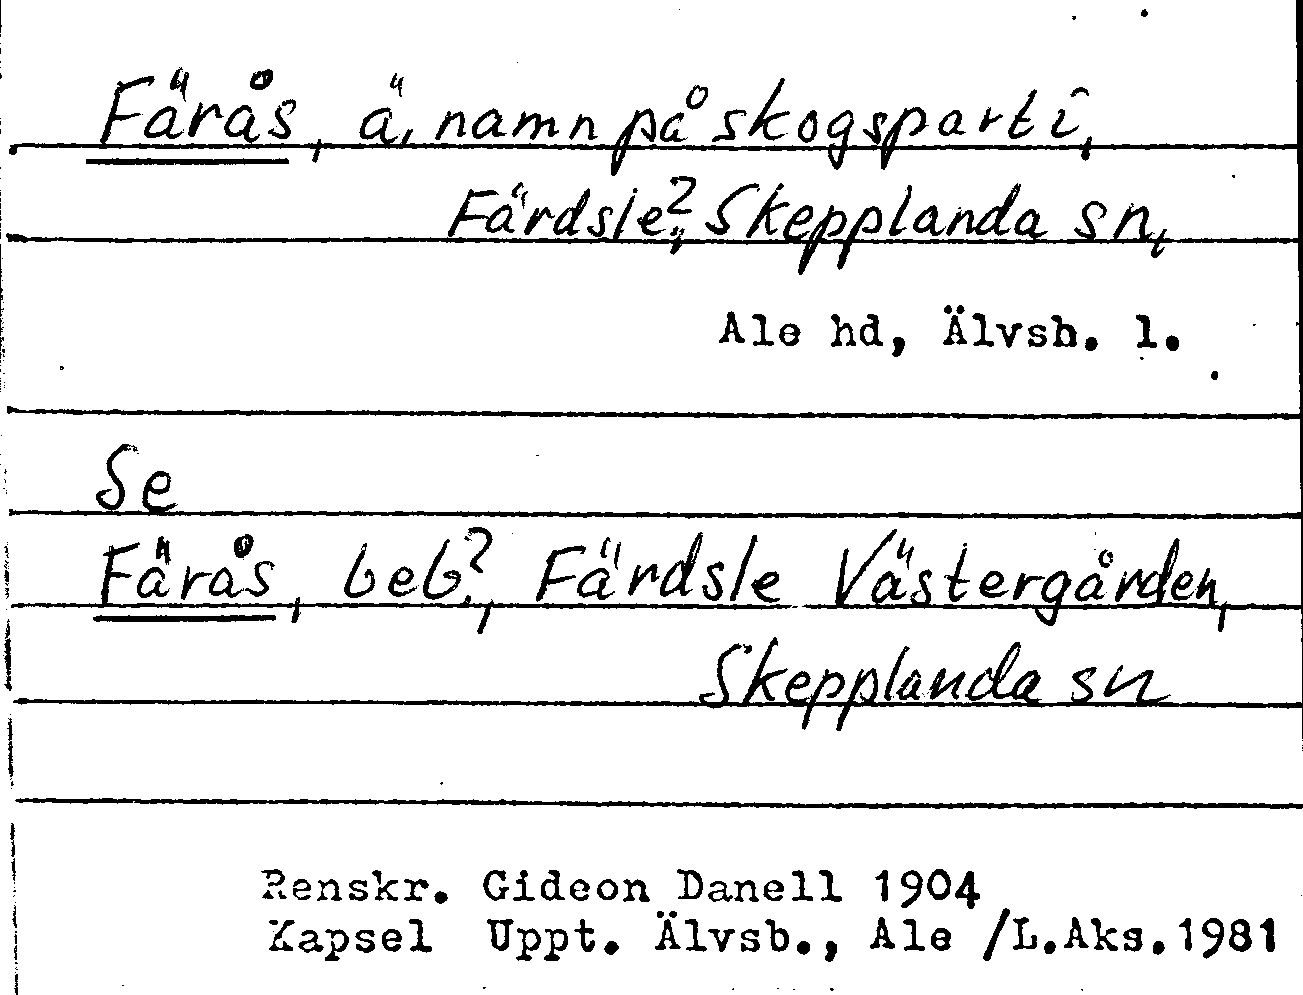 Färås, ä, namn på skogsparti,
Färdsle?, Skepplanda sn,
Ale hd, Älvsb. l.
Se
Färås, beb.?, Färdsle Västergården,
Skepplanda sn
Renskr. Gideon Danell 1904
Kapsel Uppt. Älvsb., Ale /L.Aks.1981